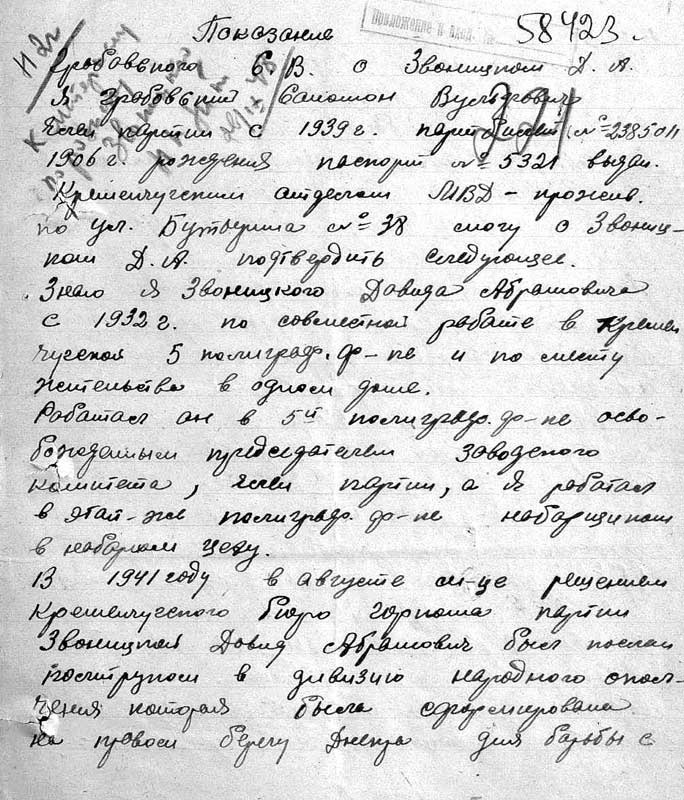 Приложение к вход. №
58423.
Показание
Грабовского С. В. о Звоницком Д. А.
Я Грабовский Саломон Вульфович
член партии с 1939 г. партбилет №
1906 г. рождения паспорт № 5321 выдан.
Кременчугским отделом МВД – прожив.
по ул. № 38 смогу о Звониц-
ком Д. А. подтвердить следующее.
Знаю я Звоницкого Давида Абрамовича
с 1932 г. по совместной работе в Кремен
чугской 5 полиграф. ф-ке и по месту
жительства в одном доме.
Работал он в 5й полиграф. ф-ке осво-
божденным председателем заводского
комитета, член партии, а я работал
в этой-же полиграф. ф-ке наборщиком
в наборном цеху.
В 1941 году в августе м-це решением
Кременчугского бюро горкома партии
Звоницкий Давид Абрамович был послан
политруком в дивизию народного опол-
чения которая была сформирована
на правом берегу Днепра для борьбы с